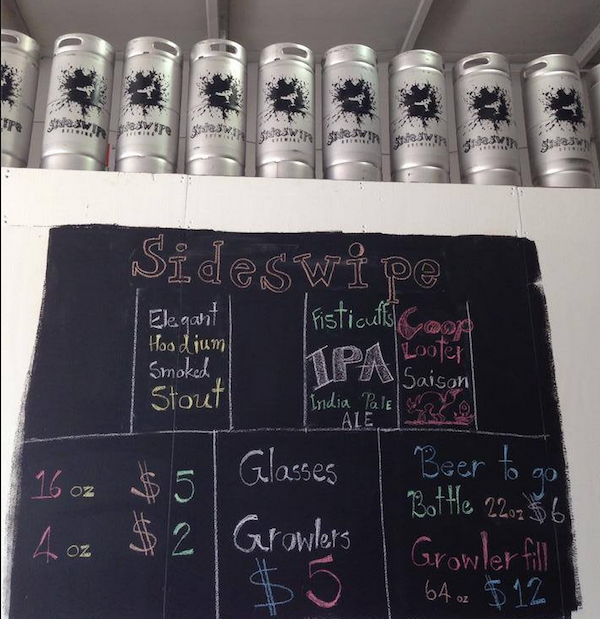 Sideswipe
BREWING
Sideswipe
BREWING
Sideswipe
BREWING
Sideswipe
BREWING
Sideswipe
BREWING
Sideswipe
BREWING
Sideswipe
BREWING
Sideswipe
Elegant
Hoodlum
Smoked
Stout
Fisticuffs
IPA
India Pale
ALE
Coop
Looter
Saison
16 oz $ 5
4 oz $ 2
Glasses
Growlers
$ 5
Beer to go
Bottle 22oz $6
Growler fill
64 oz $12